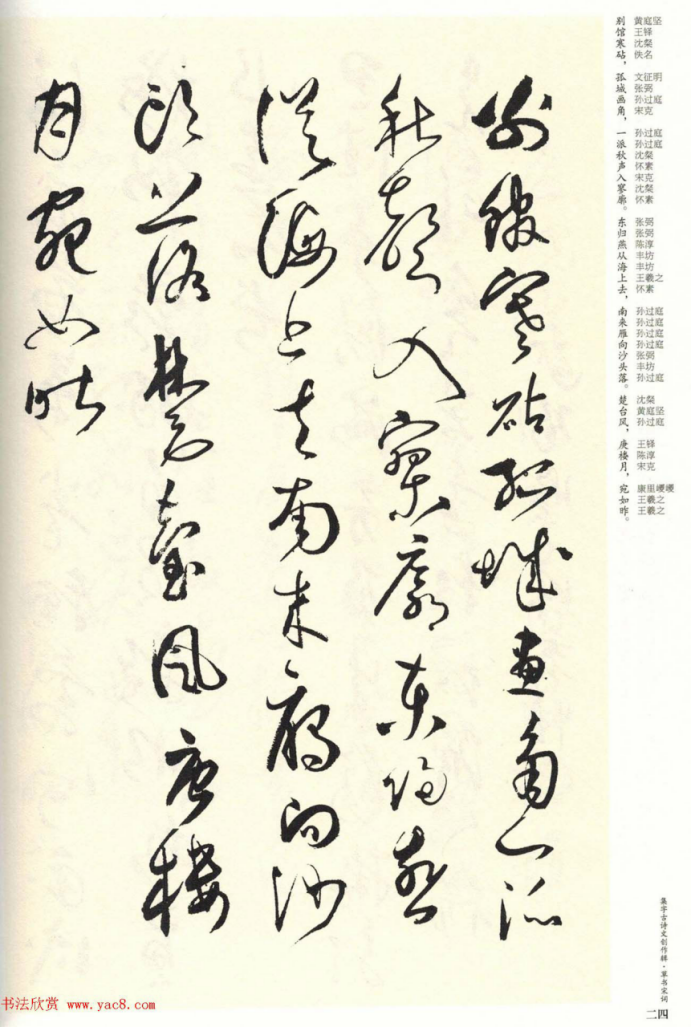 別館寒砧孤城畫角一派
秋聲入寥廓東歸燕
從海上去南來雁向沙
頭落楚臺風庾樓
月宛如昨
黄庭坚 王铎 沈粲 佚名 文征明 张弼 孙过庭 宋克 孙过庭 孙过庭 沈粲 怀素 宋克 沈粲 怀素 张弼 张弼 陈淳 丰坊 丰坊 王羲之 怀素 孙过庭 孙过庭 孙过庭 孙过庭 张弼 丰坊 孙过庭 沈粲 黄庭坚 孙过庭 王铎 陈淳 宋克 康里巎巎 王羲之 王羲之
别馆寒砧，孤城画角，一派秋声入寥廓。东归燕从海上去，南来雁向沙头落。楚台风，庾楼月，宛如昨。
集字古诗文创作辑·草书宋词
二四
书法欣赏 www.yac8.com